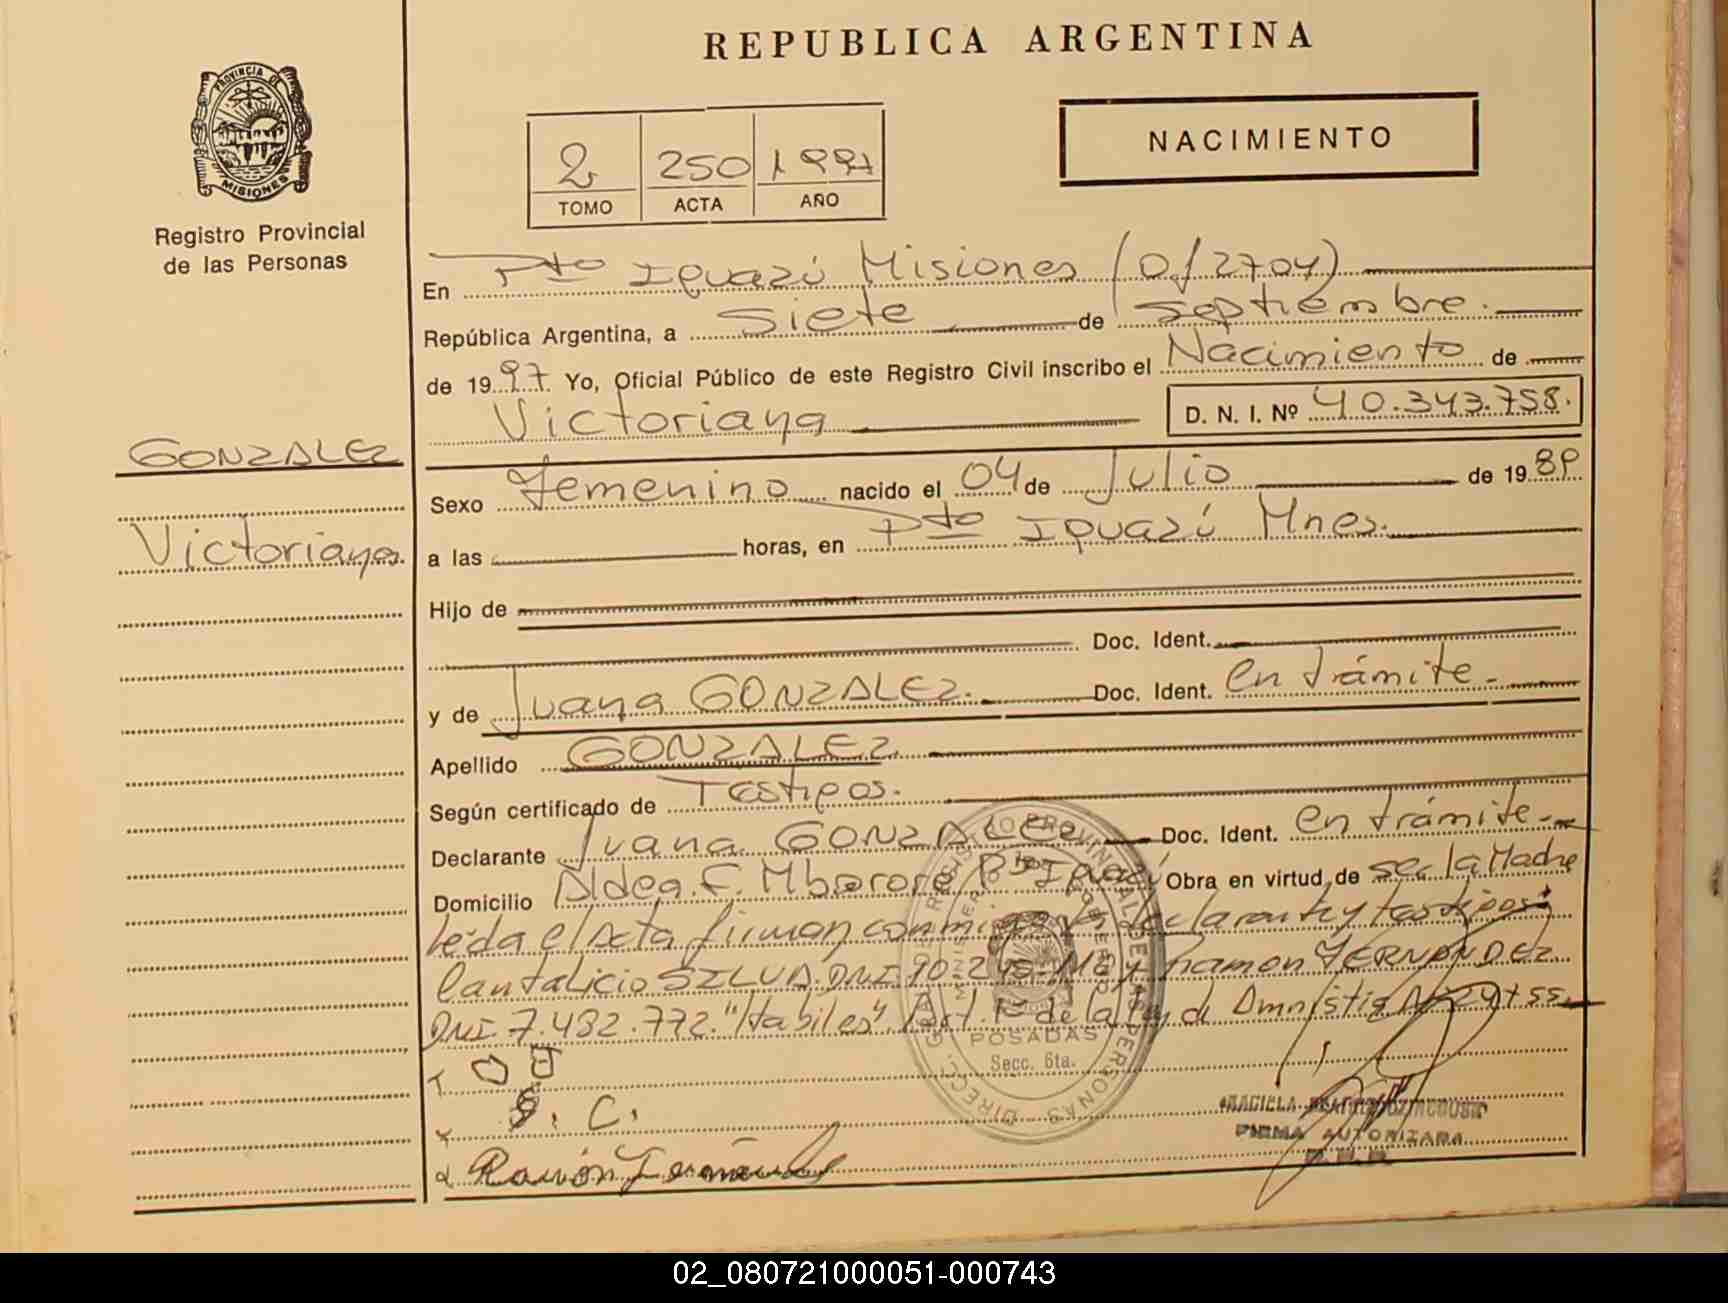 REPUBLICA ARGENTINA
PROVINCIA DE
MISIONES
Registro Provincial
de las Personas
2 250 1997
TOMO ACTA AÑO
NACIMIENTO
En Pto Iguazú Misiones (0/2704)
República Argentina, a siete de septiembre.
de 1997 Yo, Oficial Público de este Registro Civil inscribo el Nacimiento de
Victoriana D. N. I. Nº 40.343.758.
GONZALEZ
Victoriana.
Sexo Femenino nacido el 04 de Julio de 1989
a las horas, en Pto Iguazú Mnes.
Hijo de
Doc. Ident.
y de Juana GONZALEZ. Doc. Ident. en trámite.
Apellido GONZALEZ.
Según certificado de Testigos.
Declarante Juana GONZALEZ Doc. Ident. en trámite.
Domicilio Aldea F. Mbororé Pto Iguazú Obra en virtud de ser la Madre
leída el Acta firman conmigo la declarante y testigos:
Cantalicio SILVA DNI 10.248. y Ramon FERNANDEZ
DNI 7.482.772. "Habiles" Art. 1º de la Ley de Amnistia
S. C.
Ramón Fernández
POSADAS
Secc. 6ta.
FIRMA AUTORIZADA
02_080721000051-000743